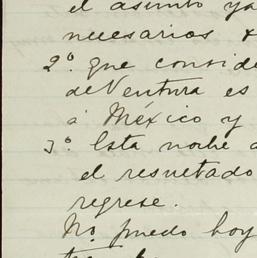 el asunto ya
necesarios
2º. que conside
de Ventura es
á México y
3º. Esta noche
el resuetado
regrese.
No puedo hoy